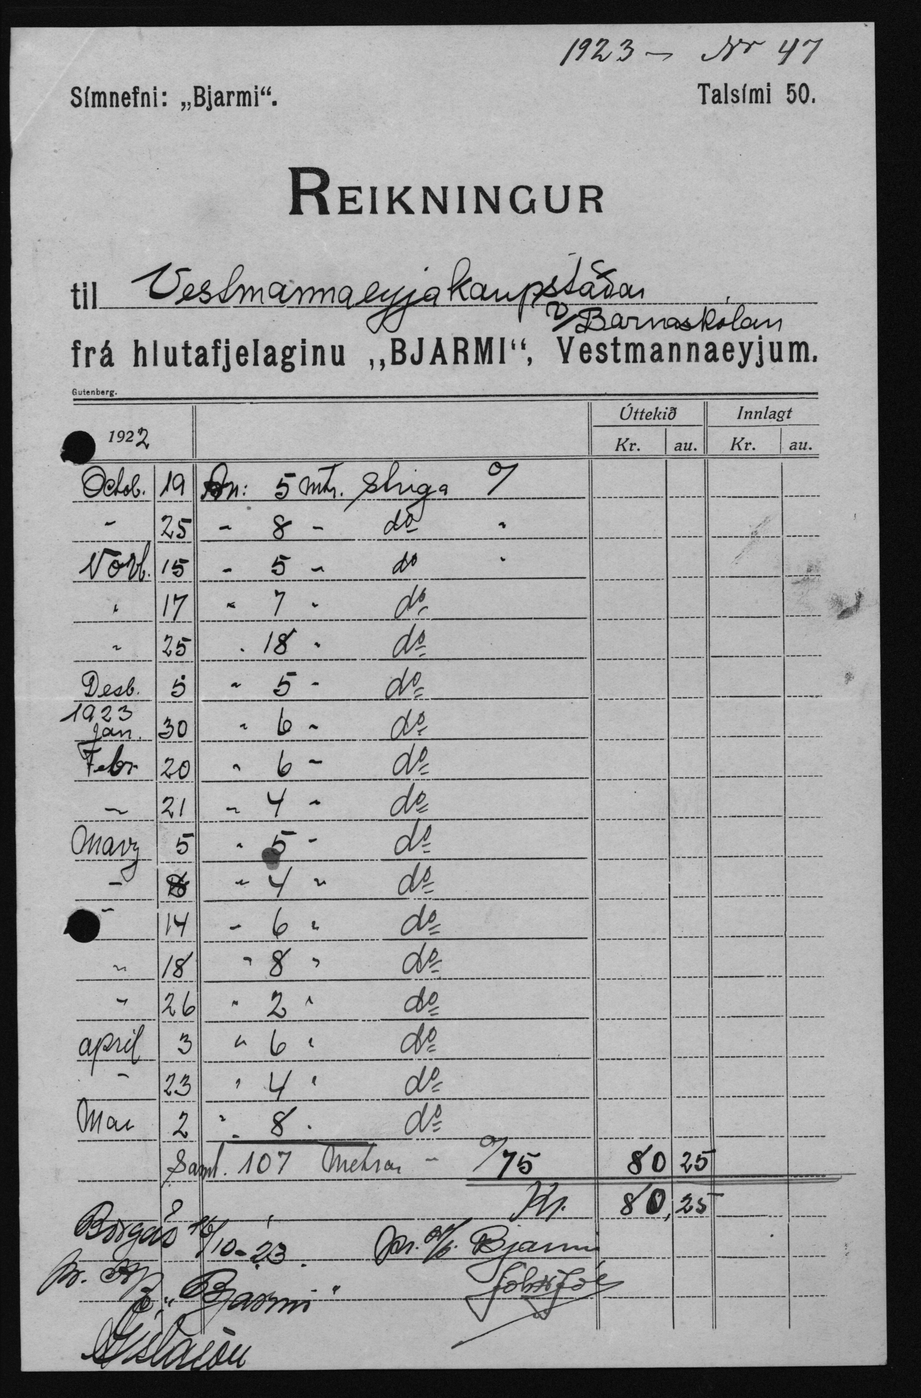 1923 – Nr 47
Símnefni: „Bjarmi“. Talsími 50.
REIKNINGUR
til Vestmannaeyjakaupstaðar
v/ Barnaskólan
frá hlutafjelaginu „BJARMI“, Vestmannaeyjum.
Gutenberg.
Úttekið Innlagt
1922 Kr. au. Kr. au.
Octob. 19 An: 5 mtr. striga á
" 25 " 8 " do "
Novb. 15 " 5 " do "
" 17 " 7 " do
" 25 " 18 " do
Desb. 5 " 5 " do
1923
Jan. 30 " 6 " do
Febr 20 " 6 " do
" 21 " 4 " do
Marz 5 " 5 " do
" 8 " 4 " do
" 14 " 6 " do
" 18 " 8 " do
" 26 " 2 " do
april 3 " 6 " do
" 23 " 4 " do
Mai 2 " 8 " do
Saml. 107 Metrar - 0/75 80 25
Kr. 80,25
Borgað 16/10-23. pr. h/f. Bjarmi
pr. H/f „Bjarmi“